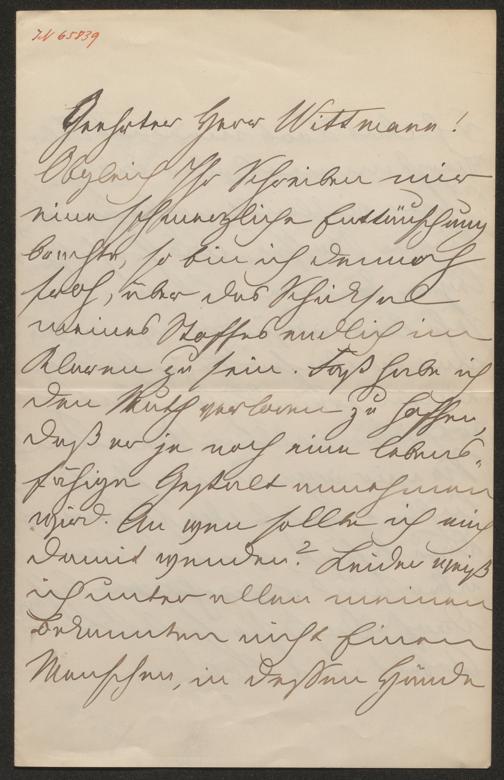 IN 65839
Geehrter Herr Wittmann!
Obgleich Ihr Schreiben mir
eine schmerzliche Enttäuschung
brachte, so bin ich dennoch
froh, über das Schicksal
meines Stoffes endlich im
Klaren zu sein. Fast habe ich
den Muth verloren zu hoffen,
daß er je noch eine lebens-
fähige Gestalt annehmen
wird. An wen sollte ich mich
damit wenden? Leider weiß
ich unter allen meinen
Bekannten nicht Einen
Menschen, in dessen Hände